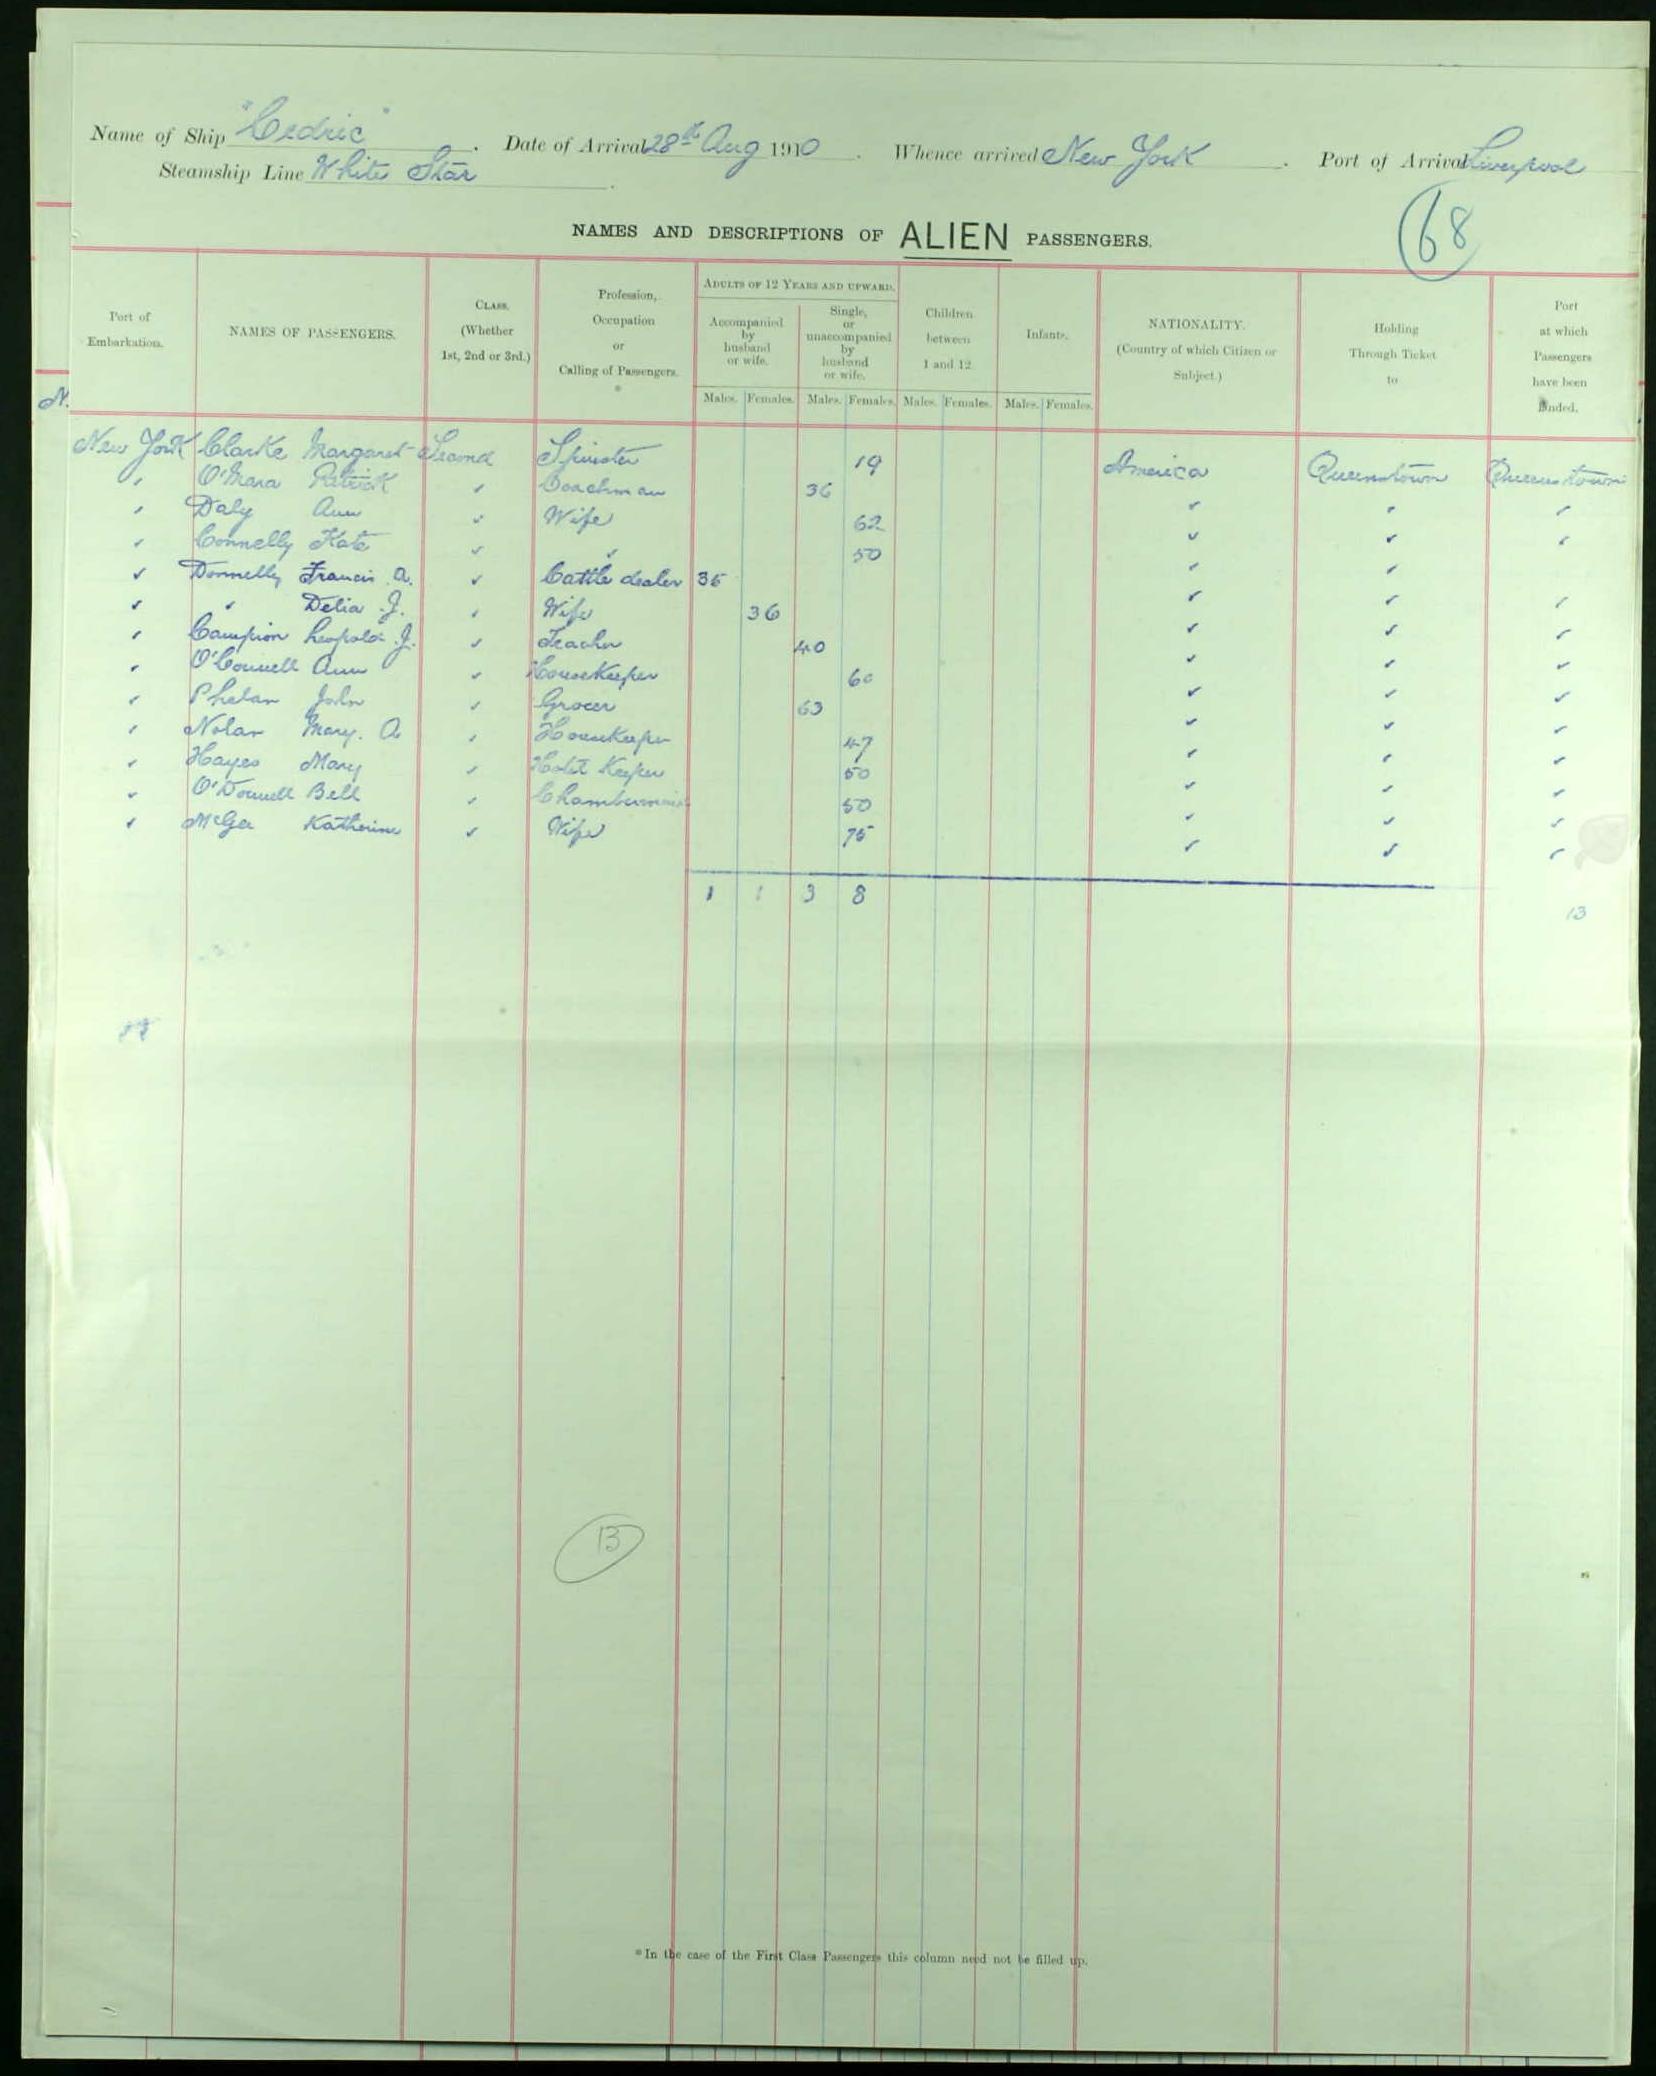 Name of Ship "Cedric". Date of Arrival 28th Aug 1910. Whence arrived New York. Port of Arrival Liverpool
Steamship Line White Star.
68
NAMES AND DESCRIPTIONS OF ALIEN PASSENGERS.
Port of Embarkation. NAMES OF PASSENGERS. CLASS. (Whether 1st, 2nd or 3rd.) Profession, Occupation or Calling of Passengers. * ADULTS OF 12 YEARS AND UPWARD. Accompanied by husband or wife. Single, or unaccompanied by husband or wife. Children between 1 and 12 Infants. NATIONALITY. (Country of which Citizen or Subject.) Holding Through Ticket to Port at which Passengers have been landed.
Males. Females. Males. Females. Males. Females. Males. Females.
N.
New York Clarke Margaret Second Spinster 19 America Queenstown Queenstown
" O'Mara Patrick " Coachman 36 " " "
" Daly Ann " Wife 62 " " "
" Connelly Kate " " 50 " "
" Donnelly Francis A. " Cattle dealer 35 " " "
" " Delia J. " Wife 36 " " "
" Campion Leopold J. " Teacher 40 " " "
" O'Connell Ann " Housekeeper 60 " " "
" Phelan John " Grocer 63 " " "
" Nolan Mary. A " Housekeeper 47 " " "
" Hayes Mary " Hotel Keeper 50 " " "
" O'Donnell Bell " Chambermaid 50 " " "
" McGee Katherine " Wife 75 " " "
1 1 3 8
13
13
*In the case of the First Class Passengers this column need not be filled up.